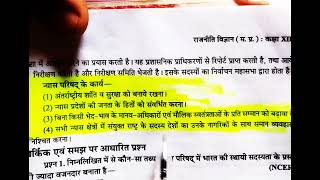 राजनीति विज्ञान ( म. प्र. ) : कक्षा XII
करने का प्रयास करता है। यह प्रशासनिक प्राधिकरणों से रिपोर्ट प्राप्त करती है, तथा
निरीक्षण करती है और निरीक्षण समिति भेजती है। इसके सदस्यों का निर्वाचन महासभा द्वारा होता है
न्यास परिषद् के कार्य—
(1) अंतर्राष्ट्रीय शांति व सुरक्षा को बनाये रखना।
(2) न्यास प्रदेशों की जनता के हितों को संवर्धित करना।
(3) बिना किसी भेद-भाव के मानव-अधिकारों एवं मौलिक स्वतंत्रताओं के प्रति सम्मान को बढ़ावा
(4) सभी न्यास क्षेत्रों में संयुक्त राष्ट्र के सदस्य देशों का उनके नागरिकों के साथ समान व्यवहार
निश्चित करना।
तार्किक एवं समझ पर आधारित प्रश्न
प्रश्न 1. निम्नलिखित में से कौन-सा तथ्य परिषद् में भारत की स्थायी सदस्यता के
ज्यादा वजनदार बनाता है— (NCER